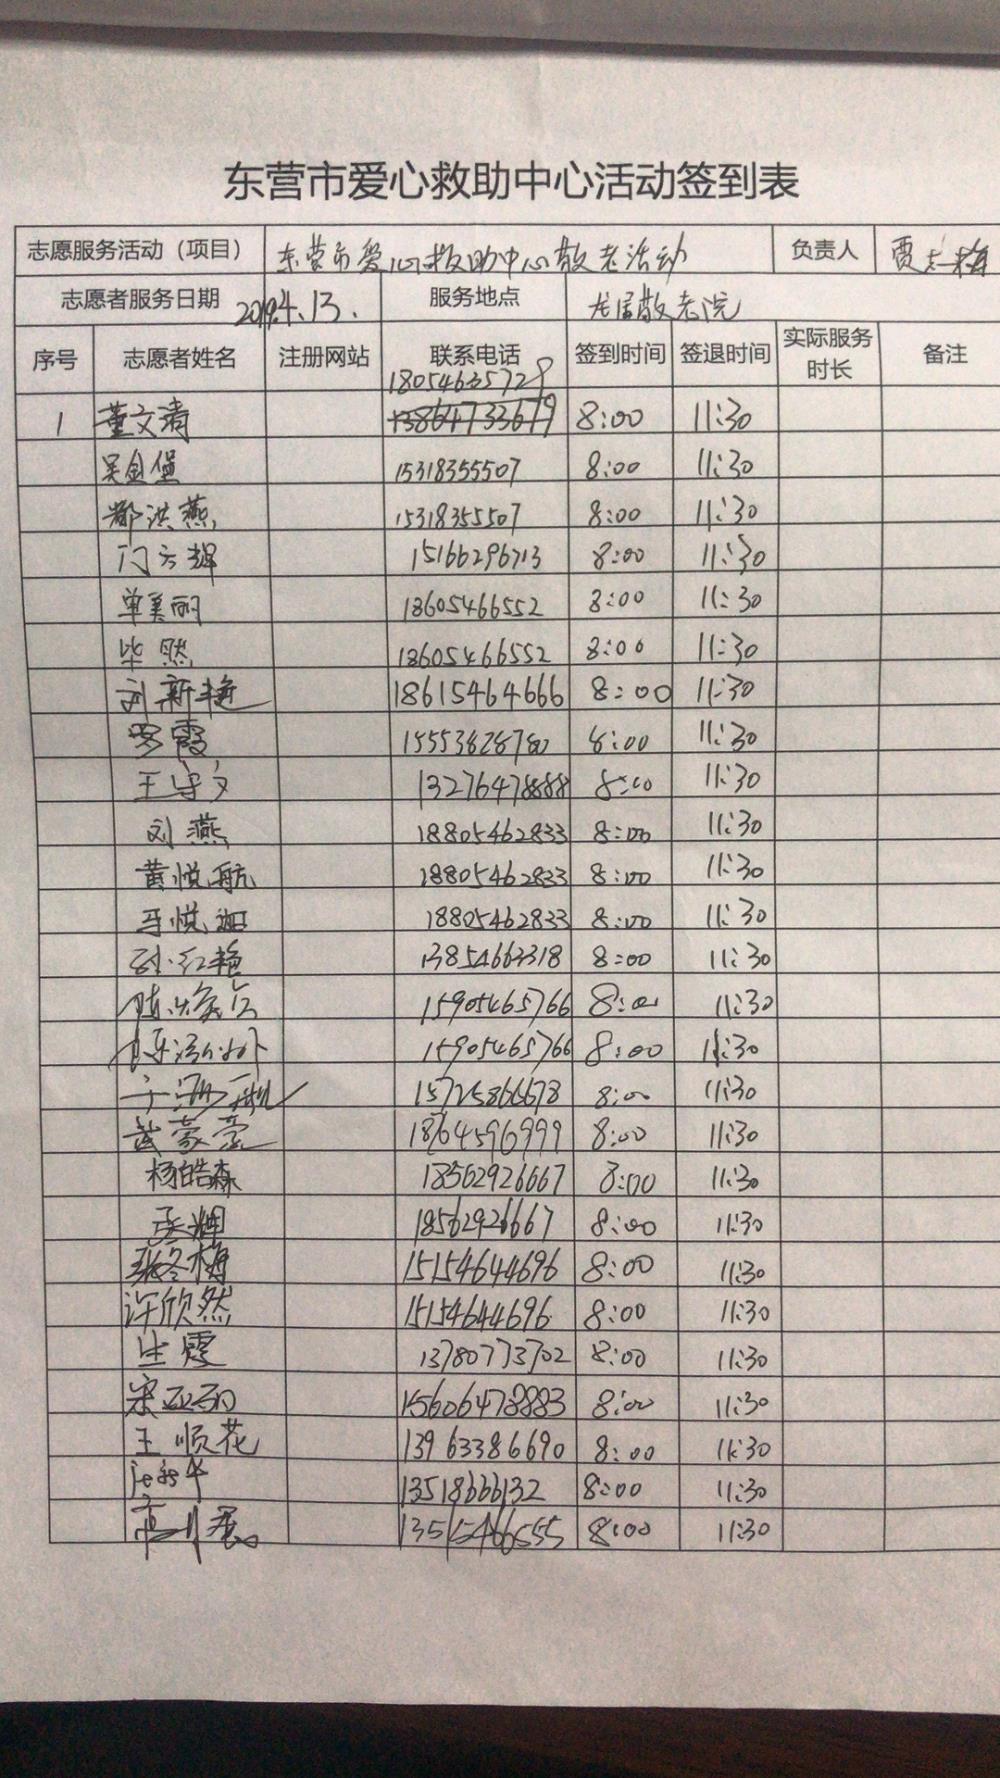 东营市爱心救助中心活动签到表
志愿服务活动（项目） 东营市爱心救助中心敬老活动 负责人 贾志梅
志愿者服务日期 2019.4.13. 服务地点 龙居敬老院
序号 志愿者姓名 注册网站 联系电话 签到时间 签退时间 实际服务时长 备注
18054635729
1 董文清 13864733679 8:00 11:30
吴金堡 15318355507 8:00 11:30
郝洪燕 15318355507 8:00 11:30
门方辉 15166296713 8:00 11:30
单美丽 18605466552 8:00 11:30
毕然 18605466552 8:00 11:30
刘新艳 18615464666 8:00 11:30
罗霞 15553828780 8:00 11:30
王守文 13276478888 8:00 11:30
刘燕 18805462833 8:00 11:30
黄悦航 18805462833 8:00 11:30
马悦迦 18805462833 8:00 11:30
孙红艳 13854663318 8:00 11:30
15905465766 8:00 11:30
15905465766 8:00 11:30
15725866678 8:00 11:30
武豪豪 18764596999 8:00 11:30
杨皓森 18562926667 8:00 11:30
张辉 18562926667 8:00 11:30
张冬梅 15154644696 8:00 11:30
许欣然 15154644696 8:00 11:30
生霞 13780773702 8:00 11:30
宋亚丽 15606478883 8:00 11:30
王顺花 13963386690 8:00 11:30
13518666132 8:00 11:30
13515466555 8:00 11:30